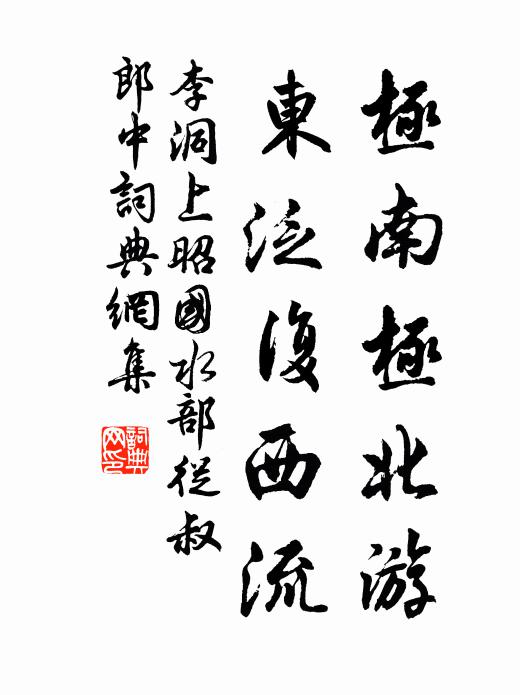 極南極北游
東泛復西流
李洞上昭國水部從叔
郎中詞典網集
詞典
网印